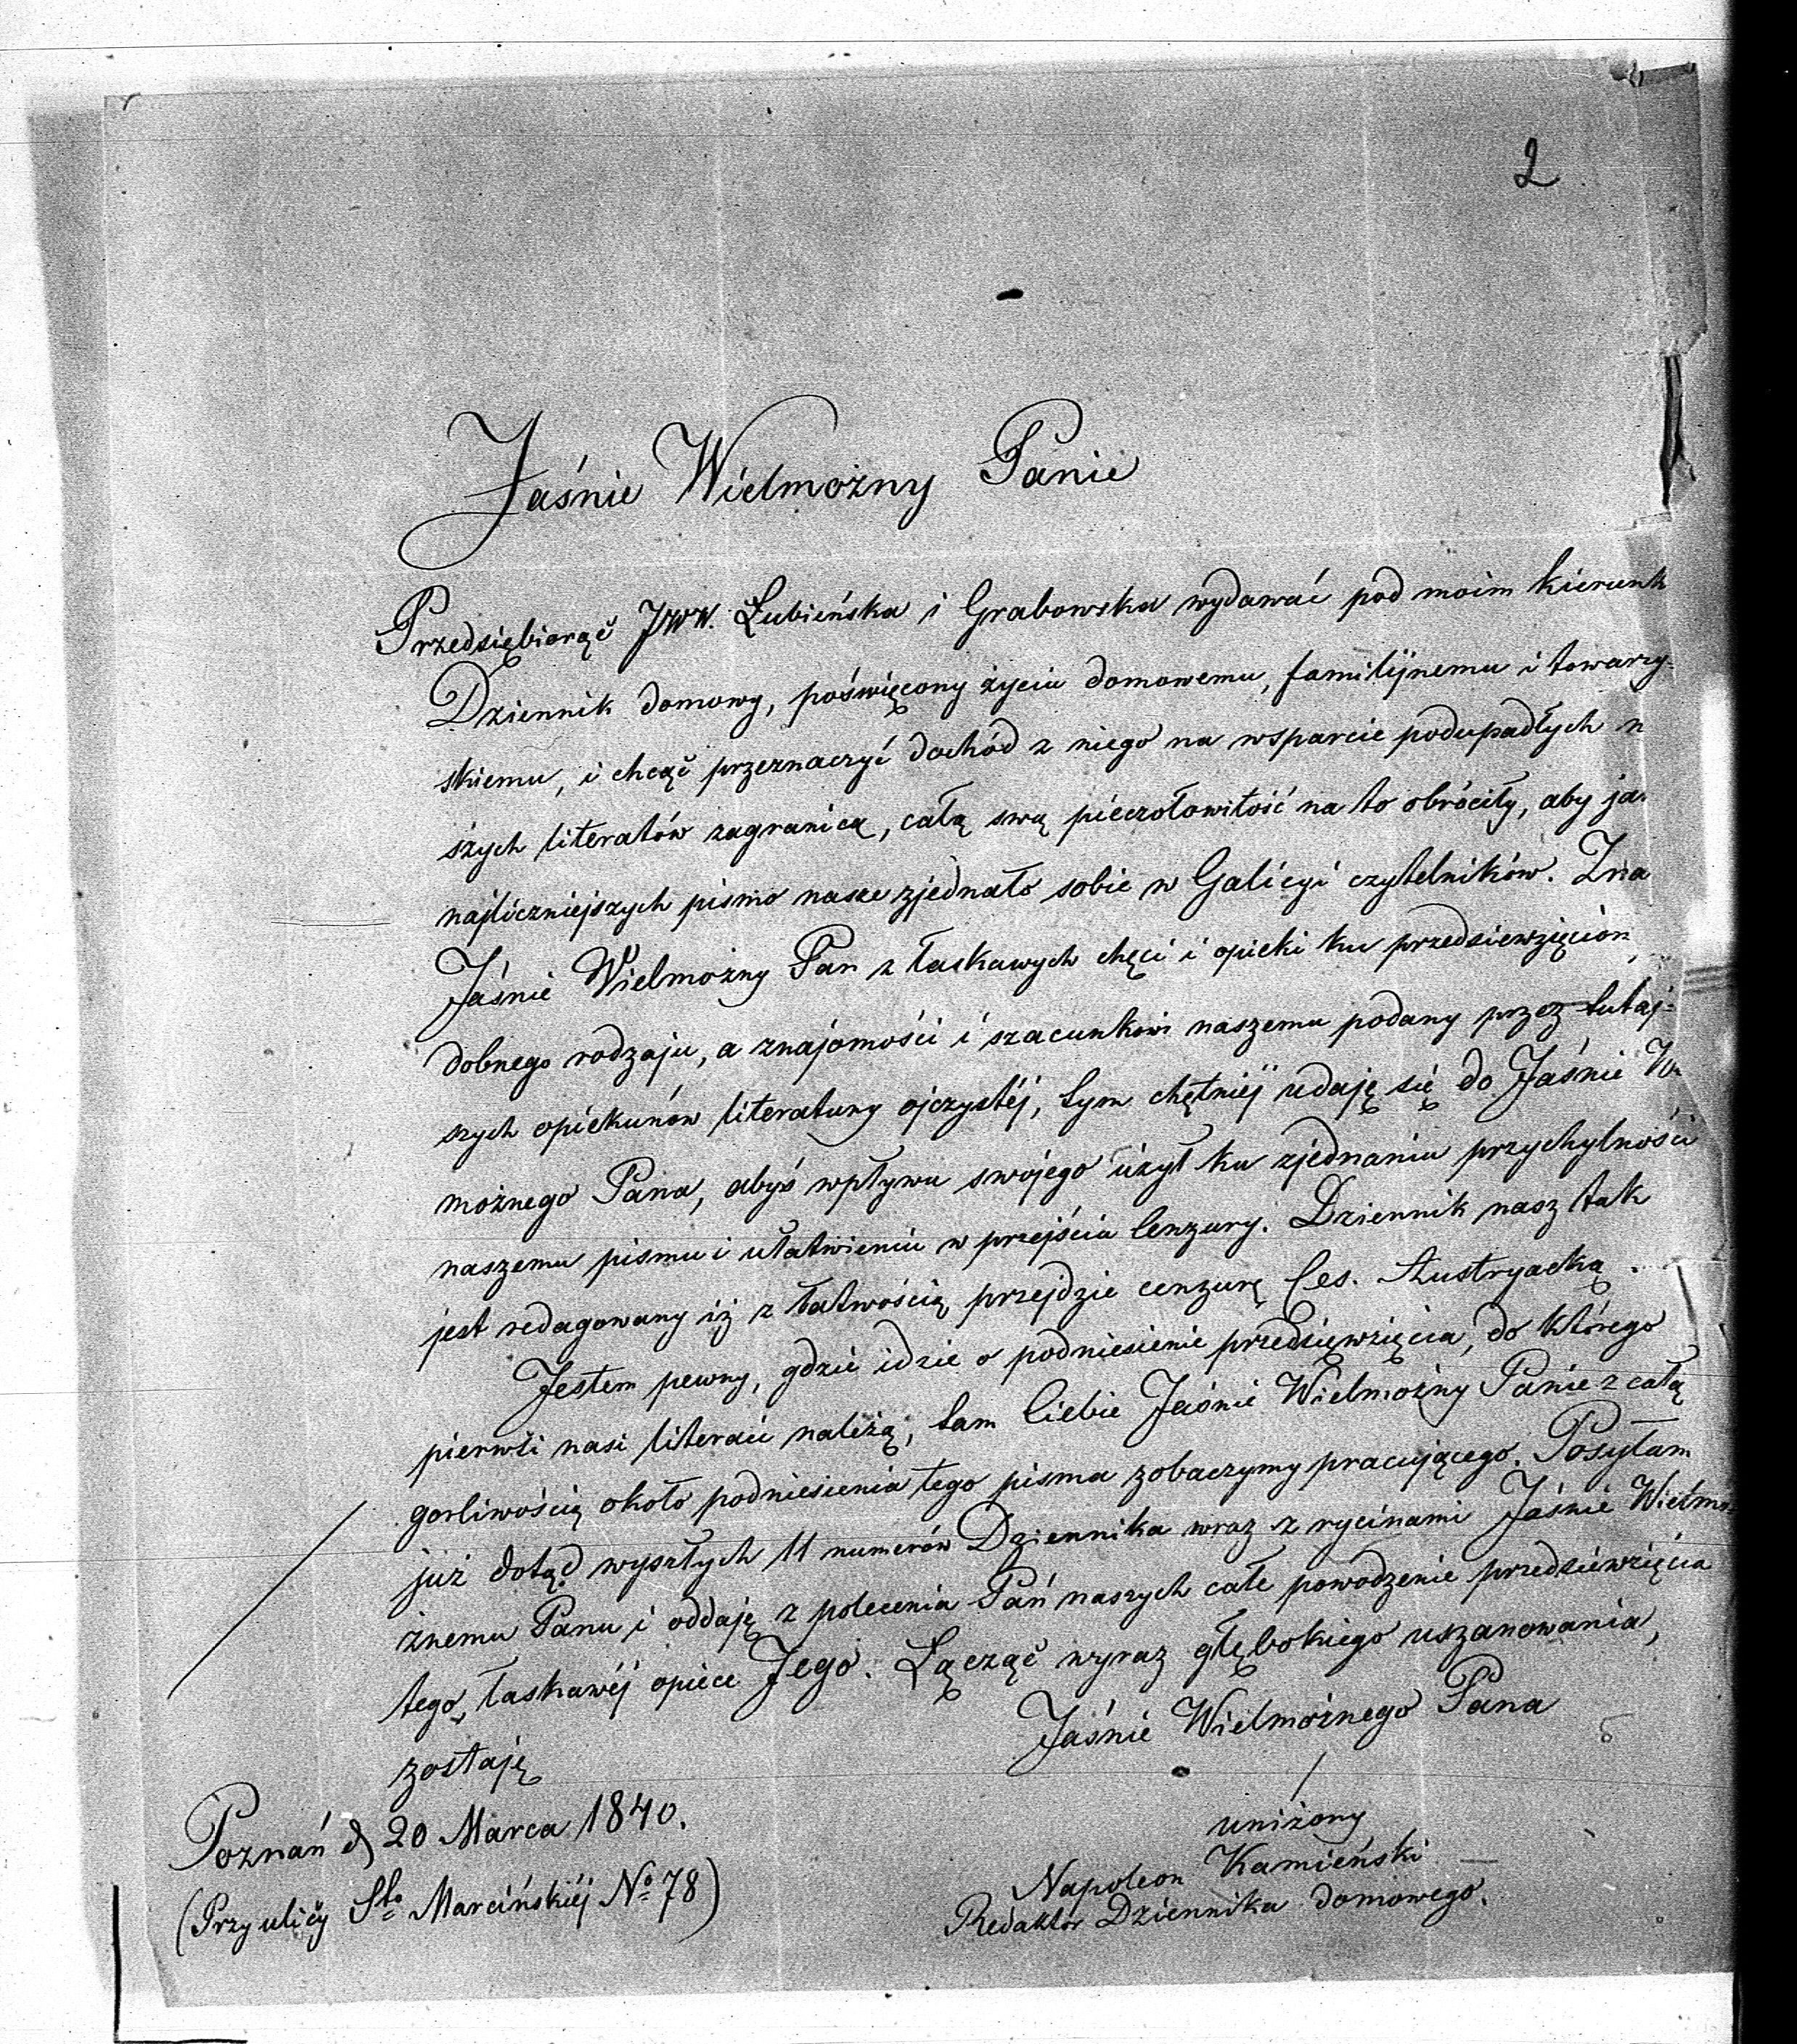 2
Jaśnie Wielmożny Panie
Przedsiębiorąc JWW. Łubieńska i Grabowska wydawać pod moim kierunk
Dziennik domowy, poświęcony życiu domowemu, familijnemu i towarzy-
skiemu, i chcąc przeznaczyć dochód z niego na wsparcie podupadłych n
szych literatów zagranicą, całą swą pieczołowitość na to obróciły, aby ja.
najliczniejszych pismo nasze zjednało sobie w Galicyi czytelników. Zna
Jaśnie Wielmożny Pan z łaskawych chęci i opieki ku przedsiewzięciom
dobnego rodzaju, a znajomości i szacunkowi naszemu podany przez tutaj-
szych opiekunów literatury ojczystéj, tym chętniéj udaję się do Jaśnie W
możnego Pana, abyś wpływu swojego użył ku zjednaniu przychylności
naszemu pismu i ułatwieniu w przejściu Cenzury. Dziennik nasz tak
jest redagowany iż z łatwością przejdzie cenzurę Ces. Austryacką.
Jestem pewny, gdzie idzie o podniesienie przedsięwzięcia, do którego
pierwsi nasi literaci należą, tam Ciebie Jaśnie Wielmożny Panie z całą
gorliwością około podniesienia tego pisma zobaczymy pracującego. Posyłam
już dotąd wyszłych 11 numerów Dziennika wraz z rycinami Jaśnie Wielmo-
żnemu Panu i oddaję z polecenia Pań naszych całe powodzenie przedsiewzięcia
tego, łaskawéj opiece Jego. Łącząc wyraz głębokiego uszanowania,
zostaję
Jaśnie Wielmożnego Pana
uniżony
Napoleon Kamieński
Redaktor Dziennika domowego.
Poznań d 20 Marca 1840.
(Przy ulicy Sto Marcińskiéj No 78)